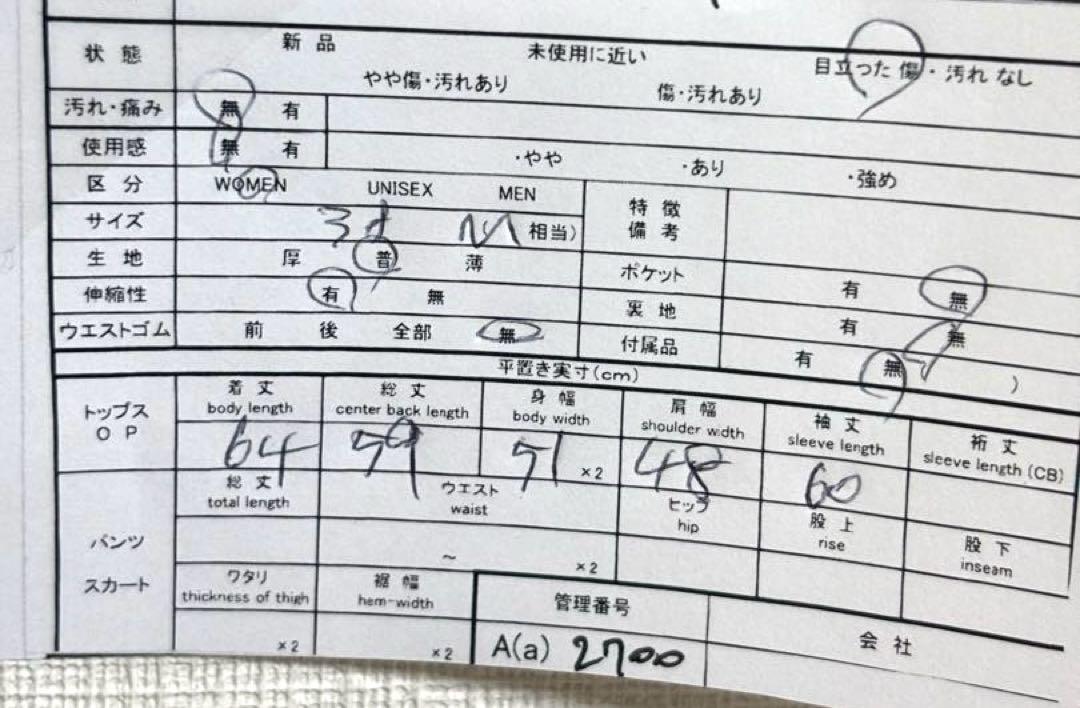 状態 新品 未使用に近い 目立った傷・汚れなし
やや傷・汚れあり 傷・汚れあり
汚れ・痛み 無 有
使用感 無 有 ・やや ・あり ・強め
区分 WOMEN UNISEX MEN 特徴
備考
サイズ M 相当)
生地 厚 普 薄 ポケット 有 無
伸縮性 有 無 裏地 有 無
ウエストゴム 前 後 全部 無 付属品 有 無 )
平置き実寸(cm)
トップス
OP
着丈 総丈 身幅 肩幅 袖丈 裄丈
body length center back length body width shoulder width sleeve length sleeve length (CB)
64 59 51 ×2 48 60
パンツ
スカート
総丈 ウエスト ヒップ 股上 股下
total length waist hip rise inseam
~ ×2
ワタリ 裾幅 管理番号 会社
thickness of thigh hem-width
×2 ×2 A(a) 2700